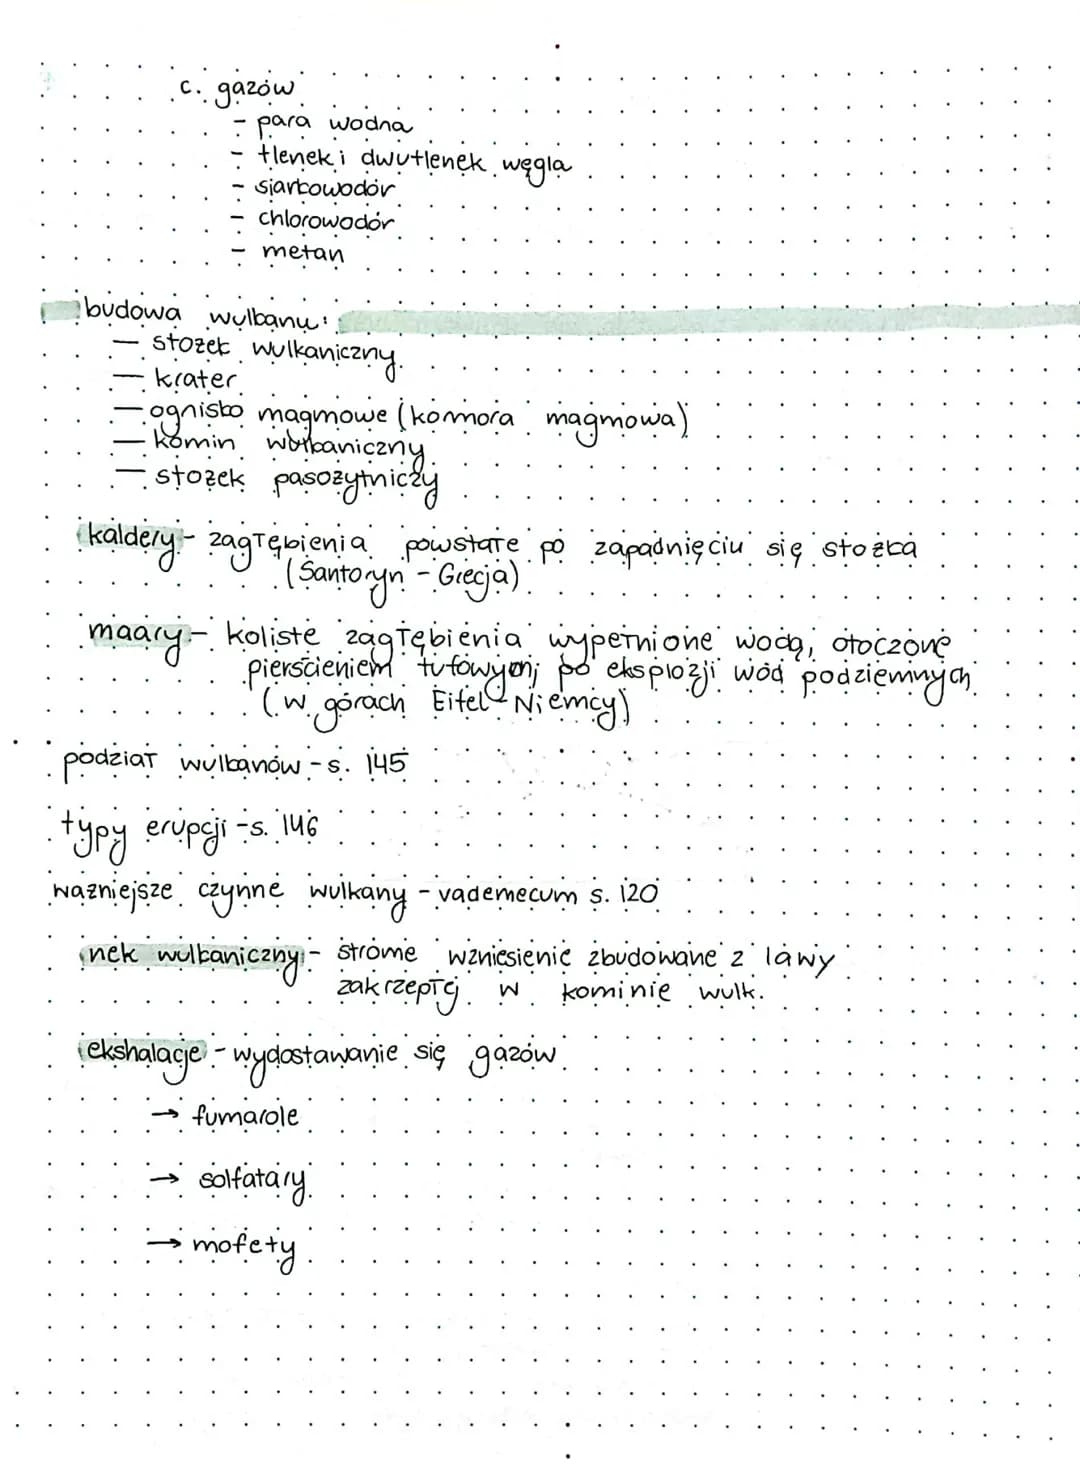 c. gazów
- para wodna
- tlenek i dwutlenek węgla
- siarkowodór
- chlorowodór
- metan
budowa wulkanu:
— stożek wulkaniczny
— krater
— ognisko magmowe (komora magmowa)
— komin wulkaniczny
— stożek pasożytniczy
kaldery - zagłębienia powstałe po zapadnięciu się stożka
(Santoryn - Grecja)
maary - koliste zagłębienia wypełnione wodą, otoczone
pierścieniem tufowym; po eksplozji wód podziemnych
(w górach Eifel - Niemcy)
podział wulkanów - s. 145
typy erupcji - s. 146
ważniejsze czynne wulkany - vademecum s. 120
nek wulkaniczny - strome wzniesienie zbudowane z lawy
zakrzepłej w kominie wulk.
ekshalacje - wydostawanie się gazów
→ fumarole
→ solfatary
→ mofety